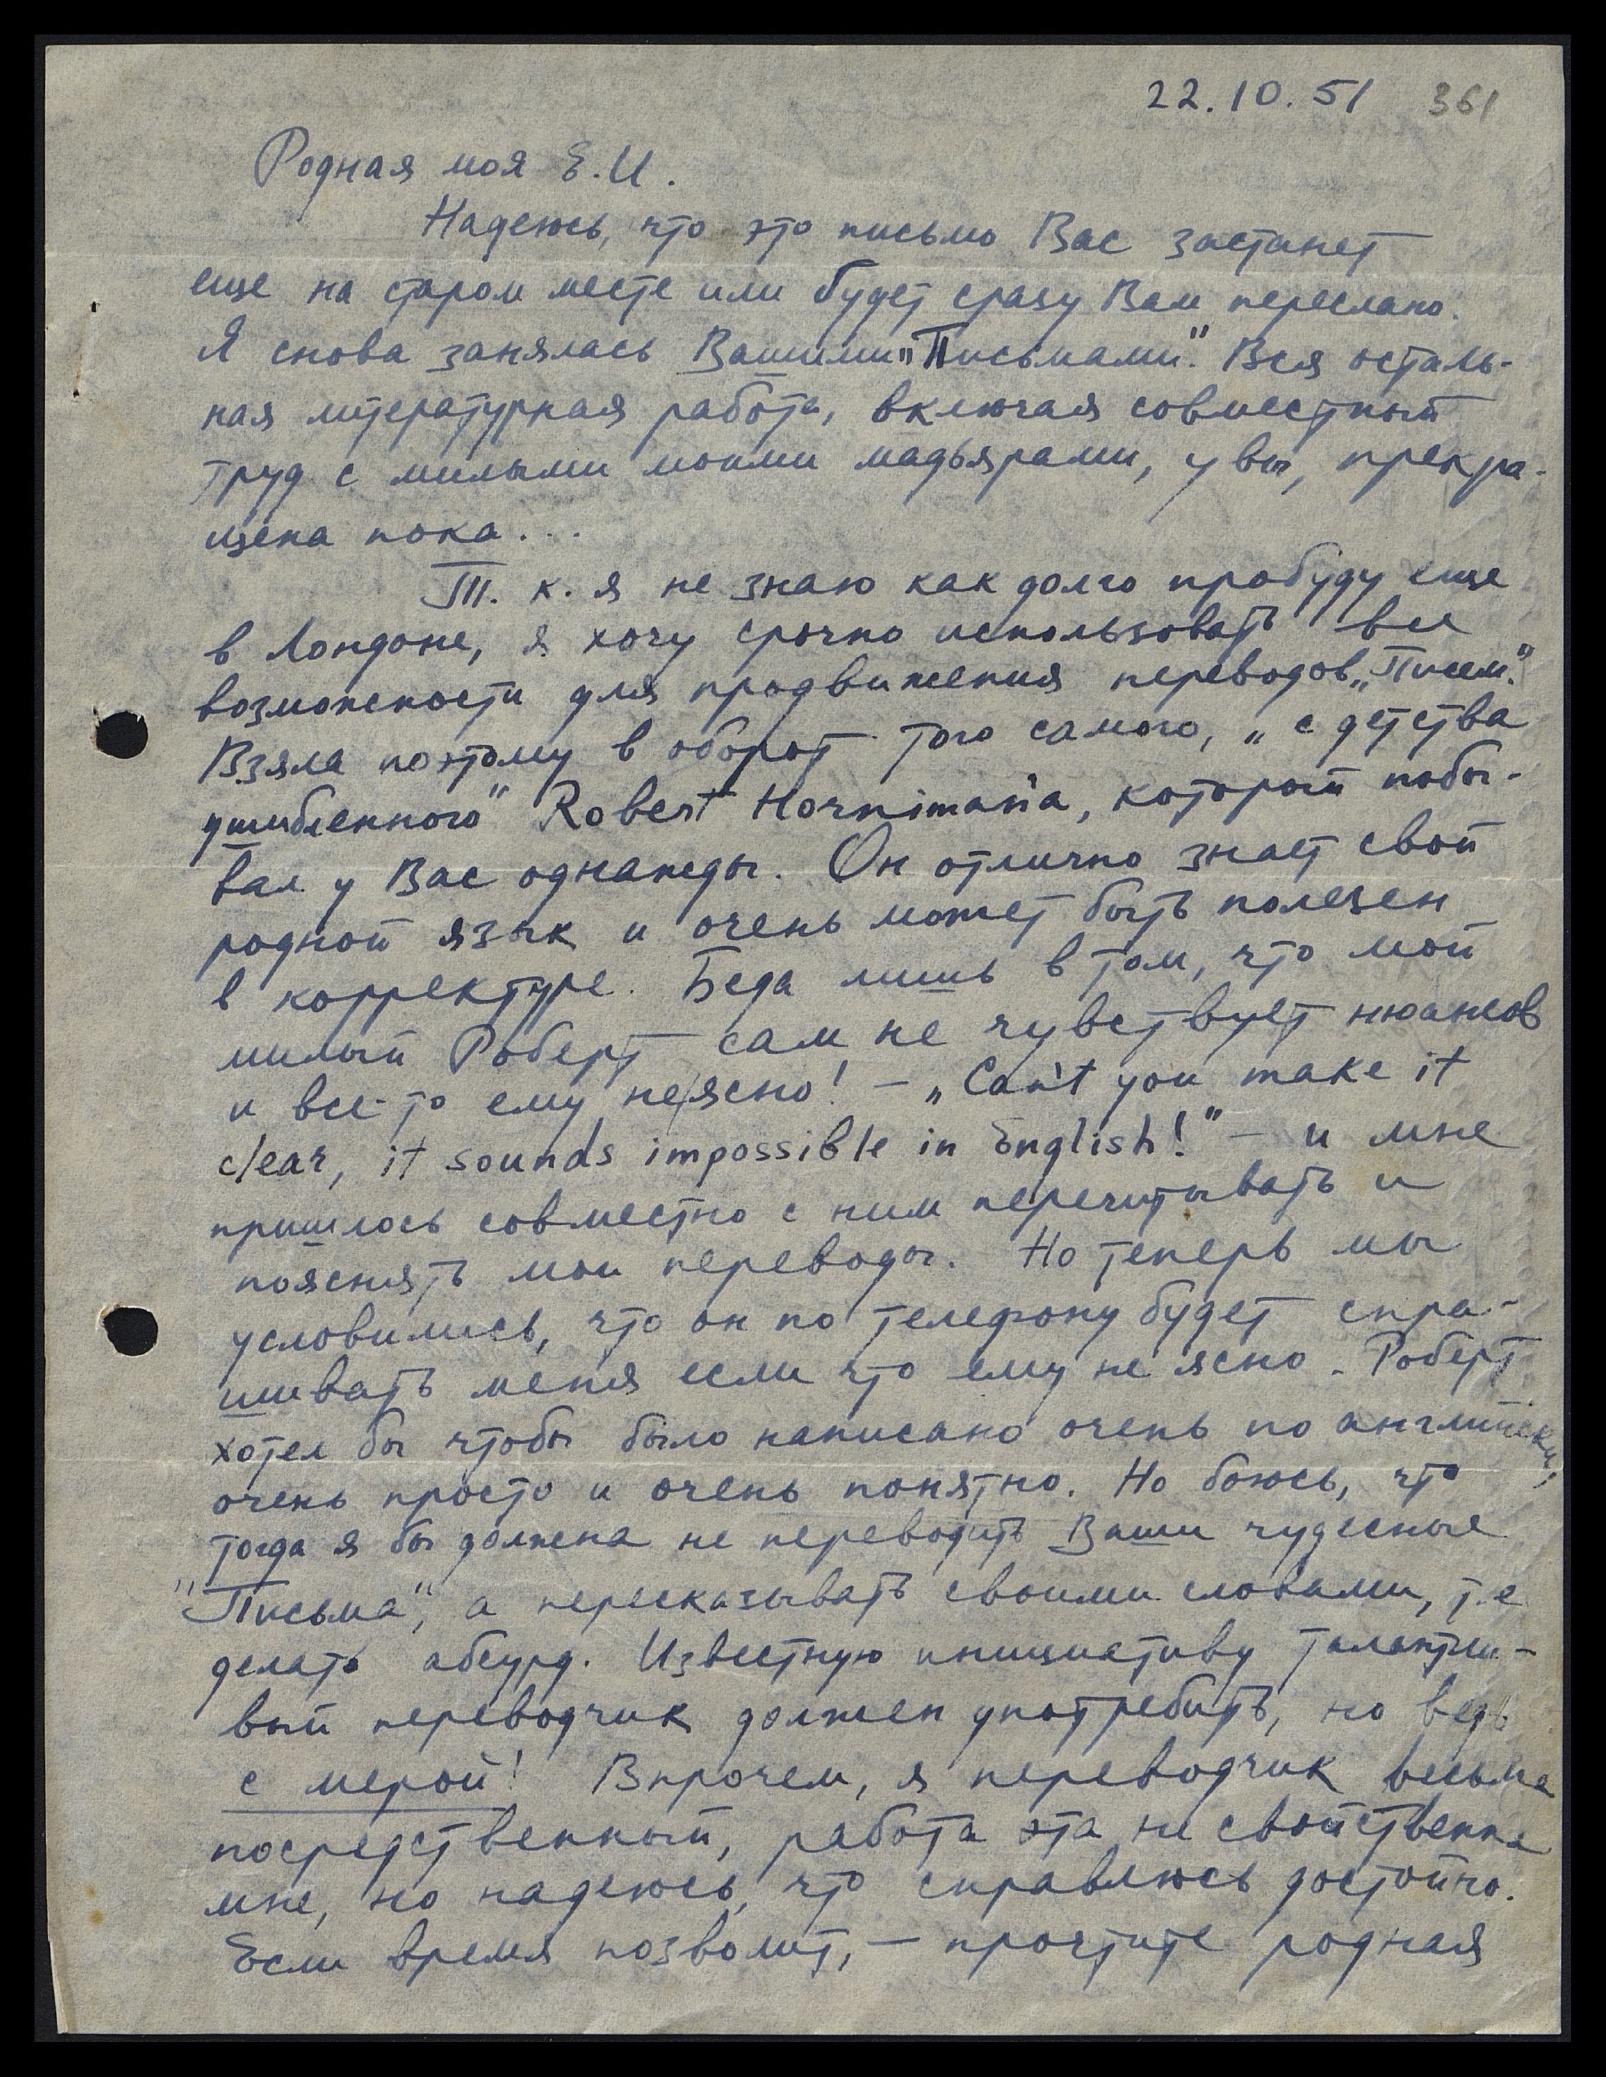 22.10.51 361
Родная моя Е.И.
Надеюсь, что это письмо Вас застанет
еще на старом месте или будет сразу Вам переслано.
Я снова занялась Вашими „Письмами". Вся осталь-
ная литературная работа, включая совместный
труд с милыми моими мадьярами, увы, прекра-
щена пока...
Т. к. я не знаю как долго пробуду еще
в Лондоне, я хочу срочно использовать все
возможности для продвижения переводов „Писем".
Взяла поэтому в оборот того самого, „с детства
ушибленного" Robert Horniman'a, который побы-
вал у Вас однажды. Он отлично знает свой
родной язык и очень может быть полезен
в корректуре. Беда лишь в том, что мой
милый Роберт сам не чувствует нюансов
и все-то ему не/ясно! – „Can't you make it
clear, it sounds impossible in English!" – и мне
пришлось совместно с ним перечитывать и
пояснять мои переводы. Но теперь мы
условились, что он по телефону будет спра-
шивать меня если что ему не ясно. Роберт
хотел бы чтобы было написано очень по английски,
очень просто и очень понятно. Но боюсь, что
тогда я бы должна не переводить Ваши чудесные
"Письма", а пересказывать своими словами, т.е
делать абсурд. Известную инициативу талантли-
вый переводчик должен употребить, но ведь
с мерой! Впрочем, я переводчик весьма
посредственный, работа эта не свойственна
мне, но надеюсь, что справлюсь достойно.
Если время позволит, – прочтите родная